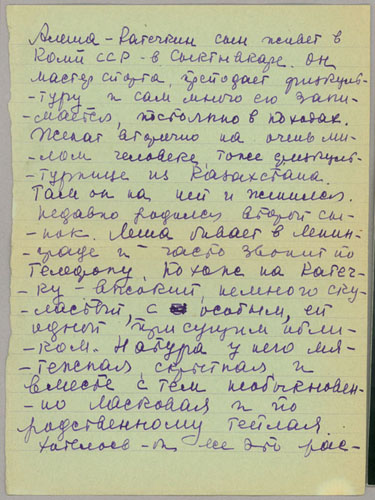 Алеша - Катечкин сын живет в
Коми ССР - в Сыктывкаре. Он
мастер спорта, преподает физкуль-
-туру и сам много ею зани-
-мается, постоянно в походах.
Женат вторично на очень ми-
-лом человеке, тоже физкульт-
-турнице из Казахстана.
Там он на ней и женился.
Недавно родился второй сы-
-нок. Леша бывает в Ленин-
-граде и часто звонит по
телефону. Похож на Катеч-
-ку - высокий, немного ску-
-ластый, с особым, ей
одной присущим обли-
-ком. Натура у него мя-
-тежная, скрытная и
вместе с тем необыкновен-
-но ласковая и по
родственному теплая.
Хотелось бы все это рас-